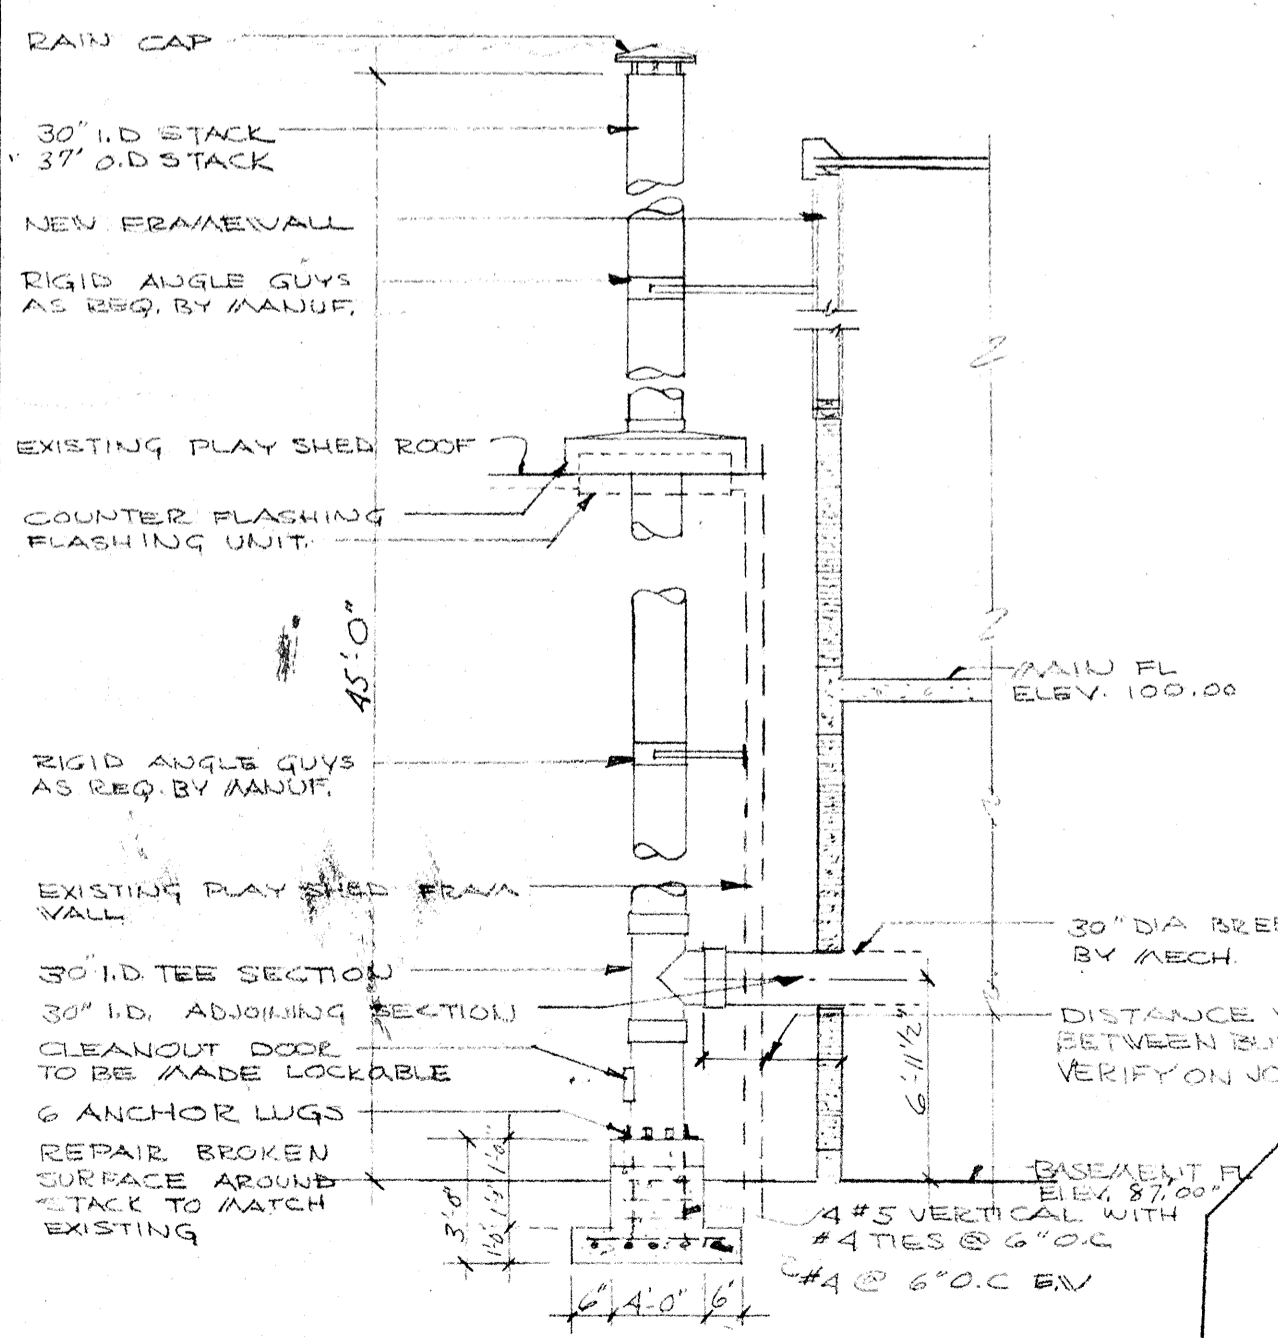 RAIN CAP
30" I.D STACK
37' O.D STACK
NEW FRAMEWALL
RIGID ANGLE GUYS
AS REQ. BY MANUF.
EXISTING PLAY SHED ROOF
COUNTER FLASHING
FLASHING UNIT.
45'-0"
MAIN FL
ELEV. 100.00
RIGID ANGLE GUYS
AS REQ. BY MANUF.
EXISTING PLAY SHED FRAM
WALL
30" I.D. TEE SECTION
30" I.D. ADJOINING SECTION
CLEANOUT DOOR
TO BE MADE LOCKABLE
6 ANCHOR LUGS
REPAIR BROKEN
SURFACE AROUND
STACK TO MATCH
EXISTING
30" DIA BREE
BY MECH.
DISTANCE
BETWEEN
VERIFY ON JO
6'-11 1/2"
BASEMENT FL
ELEV. 87.00"
4 #5 VERTICAL WITH
#4 TIES @ 6" O.C
#4 @ 6" O.C E.W
3'-0"
1'-0" 1'-0" 1'-0"
6" 4'-0" 6'